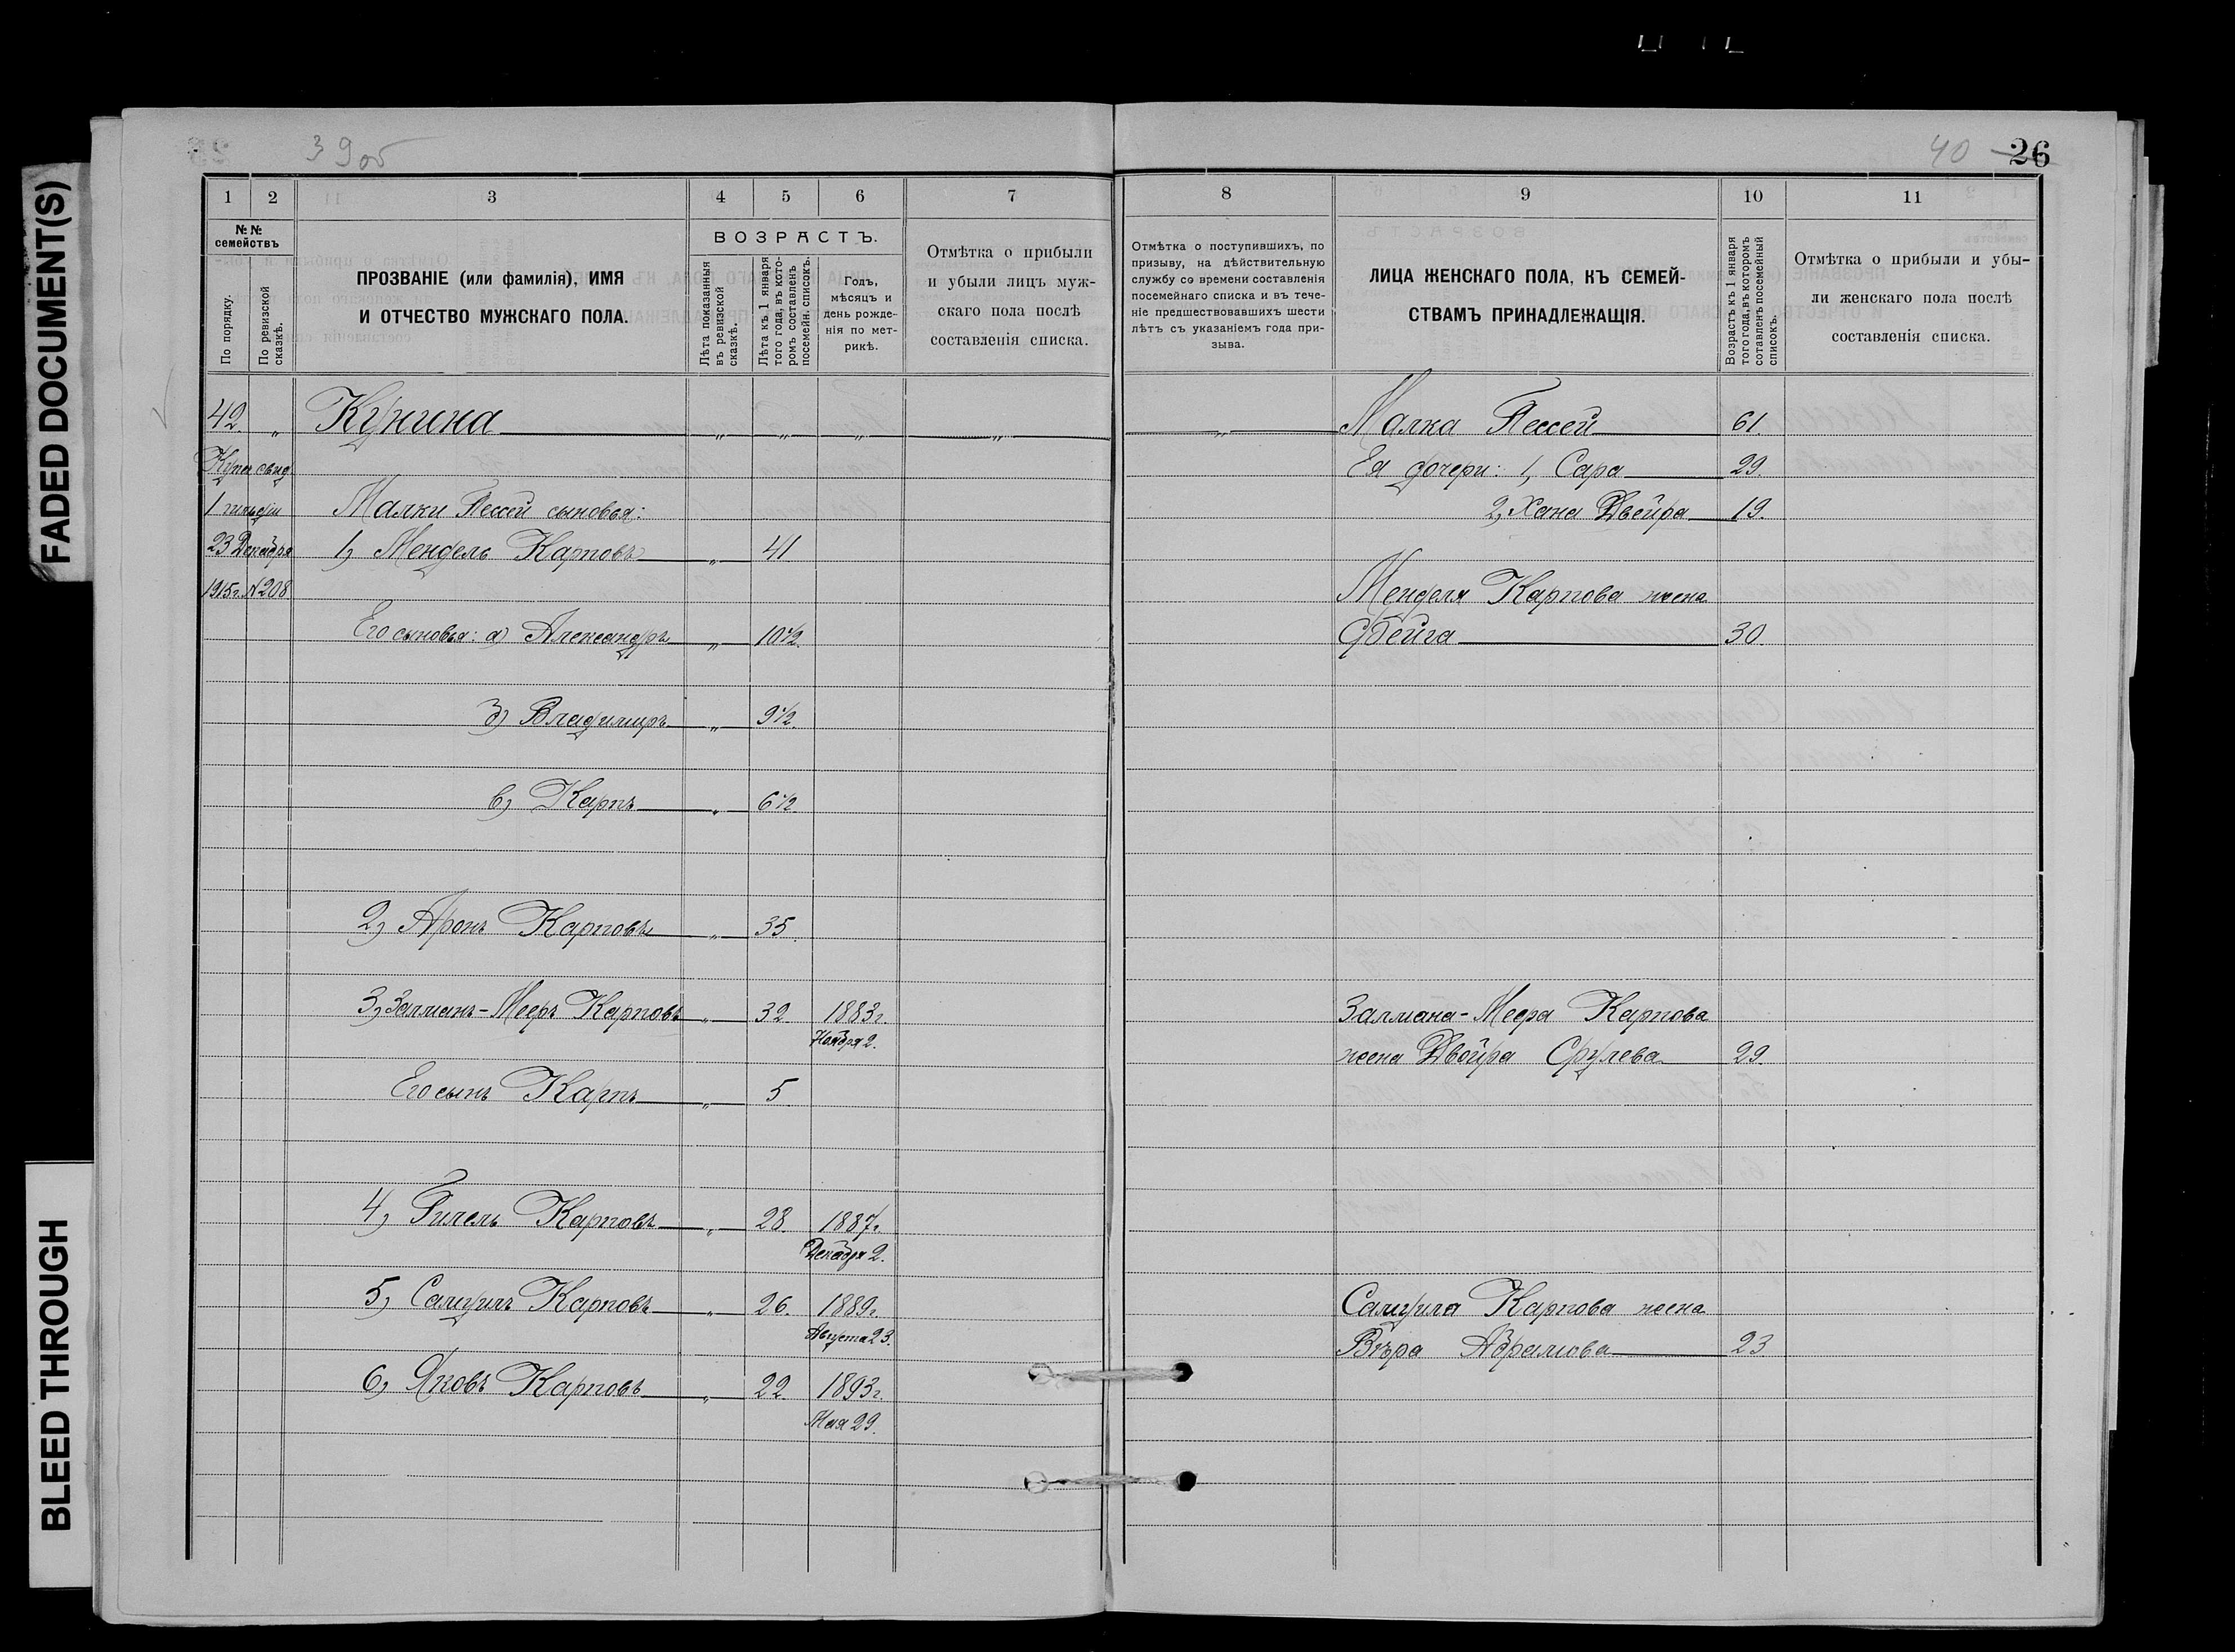 FADED DOCUMENT(S)
BLEED THROUGH
39об
40 26
1 2 3 4 5 6 7 8 9 10 11
№№ семействъ
По порядку.
По ревизской сказкѣ.
ПРОЗВАНІЕ (или фамилія), ИМЯ
И ОТЧЕСТВО МУЖСКАГО ПОЛА.
ВОЗРАСТЪ.
Лѣта показанныя въ ревизской сказкѣ.
Лѣта къ 1 января того года, въ которомъ составленъ посемейн. списокъ.
Годъ,
мѣсяцъ и
день рожде-
нія по мет-
рикѣ.
Отмѣтка о прибыли
и убыли лицъ муж-
скаго пола послѣ
составленія списка.
Отмѣтка о поступившихъ, по
призыву, на дѣйствительную
службу со времени составленія
посемейнаго списка и въ тече-
ніе предшествовавшихъ шести
лѣтъ съ указаніемъ года при-
зыва.
ЛИЦА ЖЕНСКАГО ПОЛА, КЪ СЕМЕЙ-
СТВАМЪ ПРИНАДЛЕЖАЩІЯ.
Возрастъ къ 1 января
того года, въ которомъ
сотавленъ посемейный
списокъ.
Отмѣтка о прибыли и убы-
ли женскаго пола послѣ
составленія списка.
42. „ Кунина „ „ „ „
Купч свид.
1 гильдіи
23 Декабря
1915г. №208
Малки Пессей сыновья:
1, Мендель Карповъ „ 41
Его сыновья: а) Александръ „ 10½.
б) Владимиръ „ 9½.
в) Карпъ „ 6½.
2, Аронъ Карповъ „ 35.
3, Залманъ-Мееръ Карповъ „ 32 1883г.
Ноября 2.
Его сынъ Карпъ „ 5
4, Гилель Карповъ „ 28. 1887г.
Декабря 2.
5, Самуилъ Карповъ „ 26. 1889г.
Августа 23.
6, Яковъ Карповъ „ 22 1893г.
Мая 29.
„ Малка Пессей 61.
Ея дочери: 1, Сара 29.
2, Хана Двейра 19.
Менделя Карпова жена
30.
Залмана-Меера Карпова
жена Двойра Срулева 29.
Самуила Карпова жена
Вѣра Абрамова 23